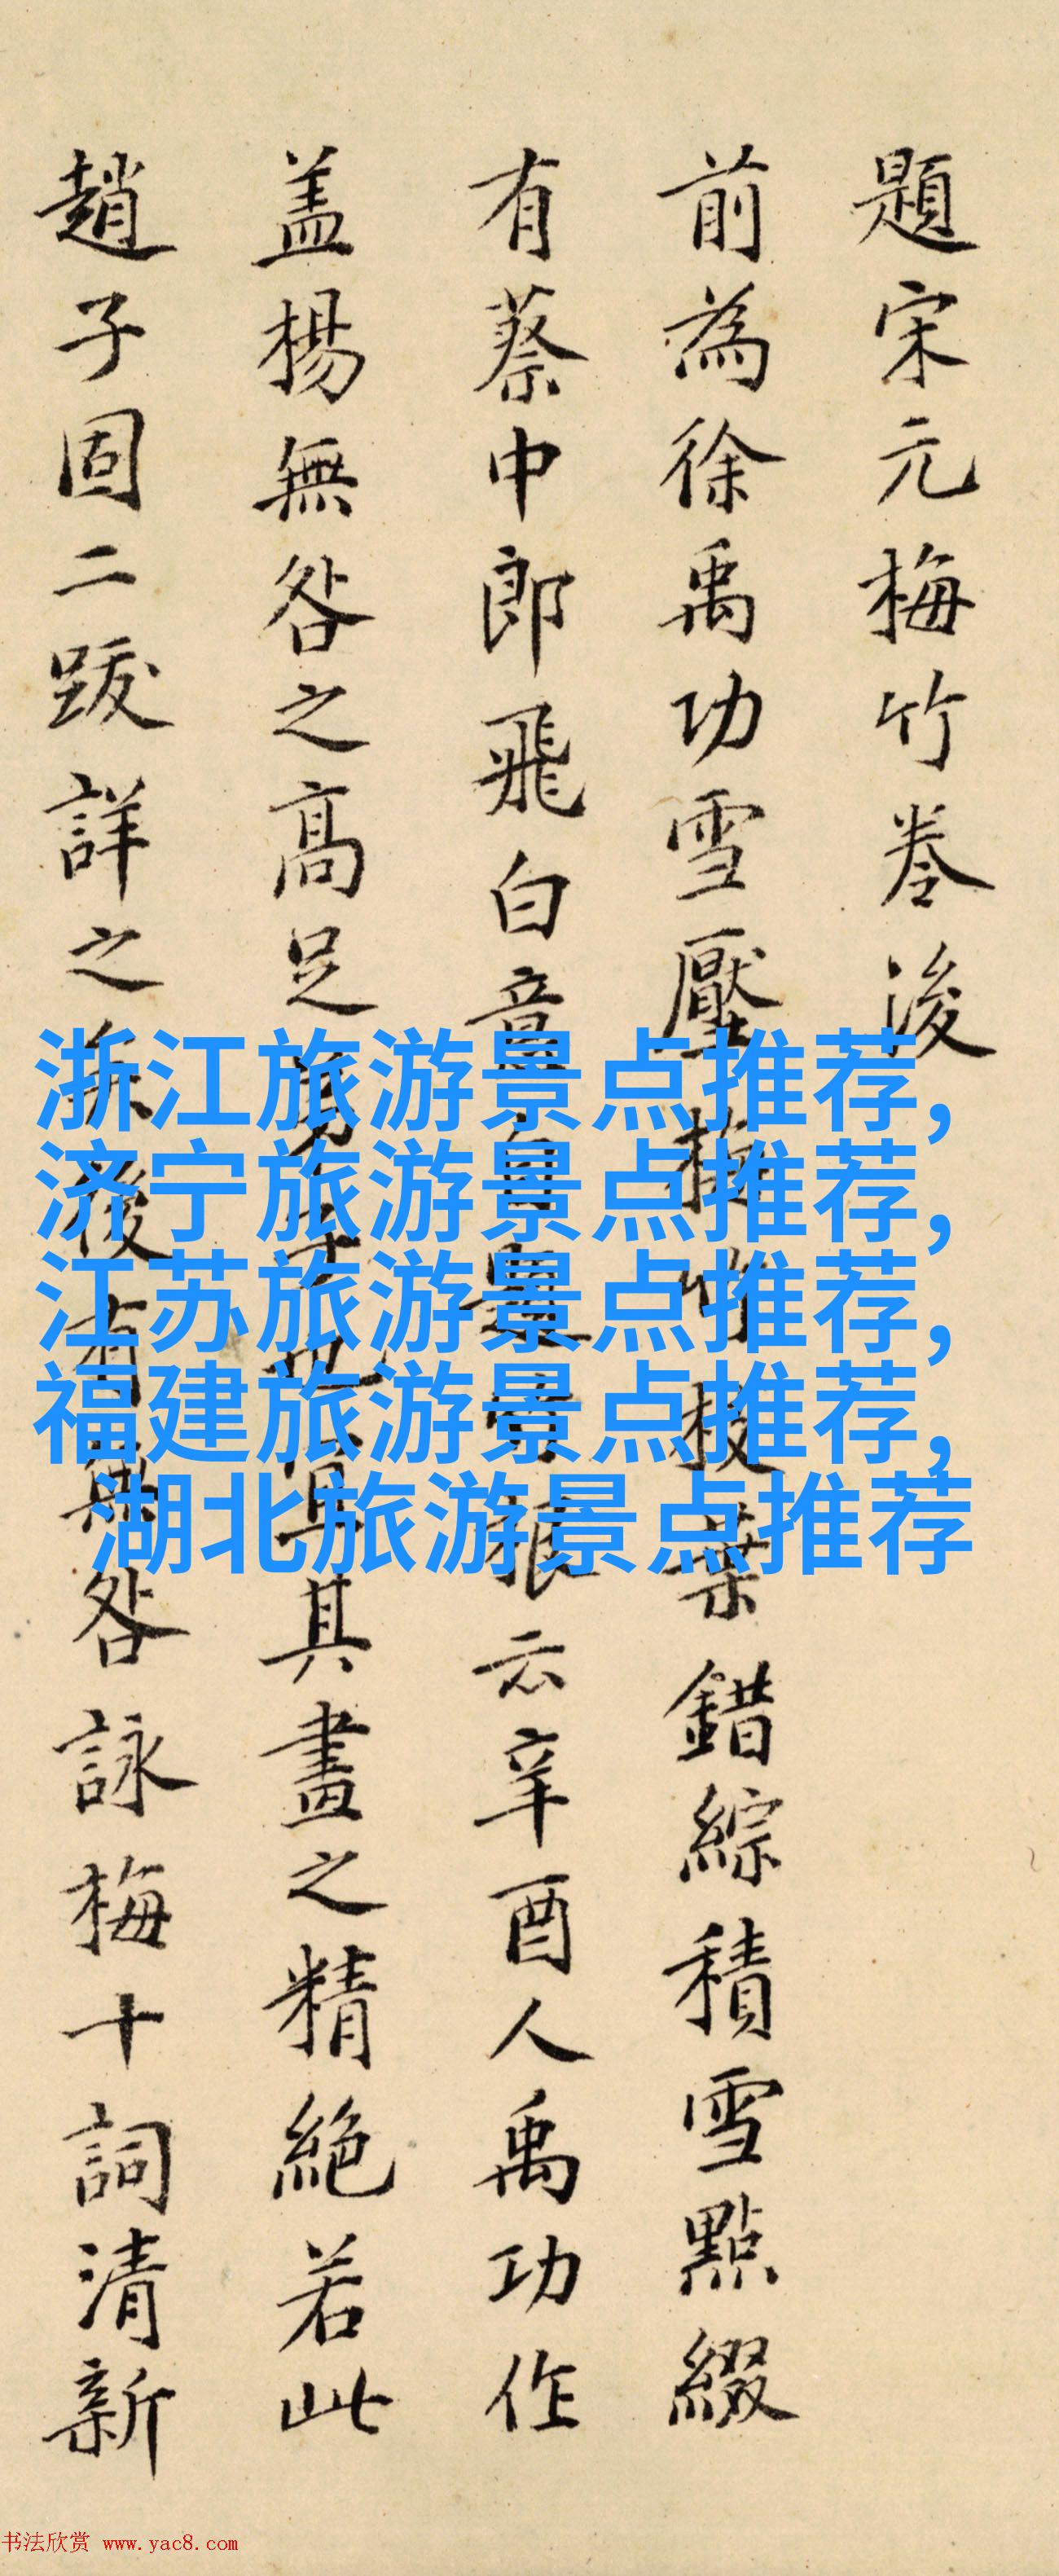 題宋元梅竹卷後
前為徐禹功雪壓梅竹枝葉錯綜積雪點綴
有蔡中郎飛白意 云辛酉人禹功作
盖楊無咎之高足 其畫之精絕若此
趙子固二跋詳之 後有無咎詠梅十詞清新
浙江旅游景点推荐,
济宁旅游景点推荐,
江苏旅游景点推荐,
福建旅游景点推荐,
湖北旅游景点推荐
书法欣赏 www.yac8.com